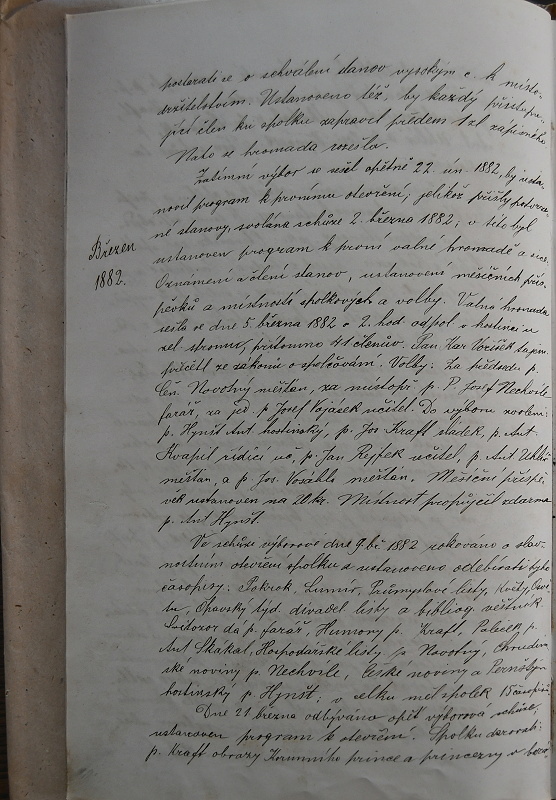 postarati se o schválení stanov vysokým c. k. místo-
držitelstvím. Ustanoveno též, by každý přistupu-
jící člen ku spolku zapravil předem 1 zl zápisného
Nato se hromada rozešla.
Zatímní výbor se sešel opětně 22. ún. 1882, by usta
novil program k prvnímu otevření; jelikož přišly potvrze
né stanovy, svolána schůze 2. března 1882; v této byl
ustanoven program k první valné hromadě a sice:
Březen
1882.
Oznámení a čtení stanov, ustanovení měsíčních přís-
pěvků a místnosti spolkových a volby. Valná hromada
sešla se dne 5. března 1882 o 2. hod. odpol. v hostinci u
zel. stromu, přítomno 41 členův. Pan Kar. tajem.
přičetl ze zákonů o spolčování. Volby: Za předsedu p.
Čeň. Novotný měšťan, za místopř. p. P. Josef Nechvíle
farář, za jed. p. Josef Vojáček učitel. Do výboru zvoleni:
p. Hynšt Ant. hostinský, p. Jos Kraft sládek, p. Ant.
Kvapil řídící uč., p. Jan Rejfek učitel, p. Ant.
měšťan, a p. Jos. Vosáhlo měšťan. Měsíční příspě-
vek ustanoven na 20 kr. Místnost propůjčil zdarma
p. Ant Hynšt.
Ve schůzi výborové dne 9. bř. 1882 rokováno o slav-
nostním otevření spolku a ustanoveno odebírati tyto
časopisy: Pokrok, Lumír, Průmyslové listy, Květy, Osvě
tu, Opavský týd. divadel. listy a bibliog. věstník
Světozor dá p. farář, Humory p. Kraft, Paleček p.
Ant Skakal, Hospodářské listy p. Novotný, Chrudim
ské noviny p. Nechvíle, České noviny a Pernštýn
hostinský p. Hynšt; v celku měl spolek 15 časopisů
Dne 21 března odbýváno opět výborová schůze,
ustanoven program k otevření. Spolku darovali:
p. Kraft obrazy Korunního prince a princezny v